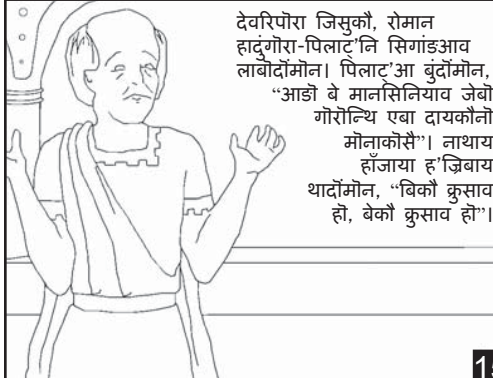 देवरिपॊरा जिसुकौ, रोमान
हादुंगॊरा-पिलाट्’नि सिगांङआव
लाबॊदॊंमॊन। पिलाट्’आ बुंदॊंमॊन,
“आङॊ बे मानसिनियाव जेबॊ
गॊरॊन्थि एबा दायकौनॊ
मॊनाकॊसै”। नाथाय
हाँजाया ह’ज्रिबाय
थादॊंमॊन, “बिकौ क्रुसाव
हॊ, बेकौ क्रुसाव हॊ”।